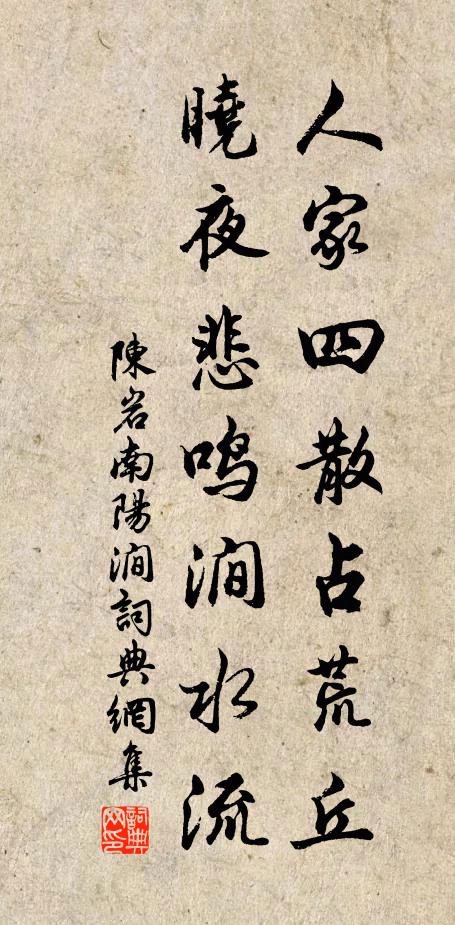 人家四散占荒丘
曉夜悲鸣澗水流
陳岩南陽澗詞典網集
詞典网印